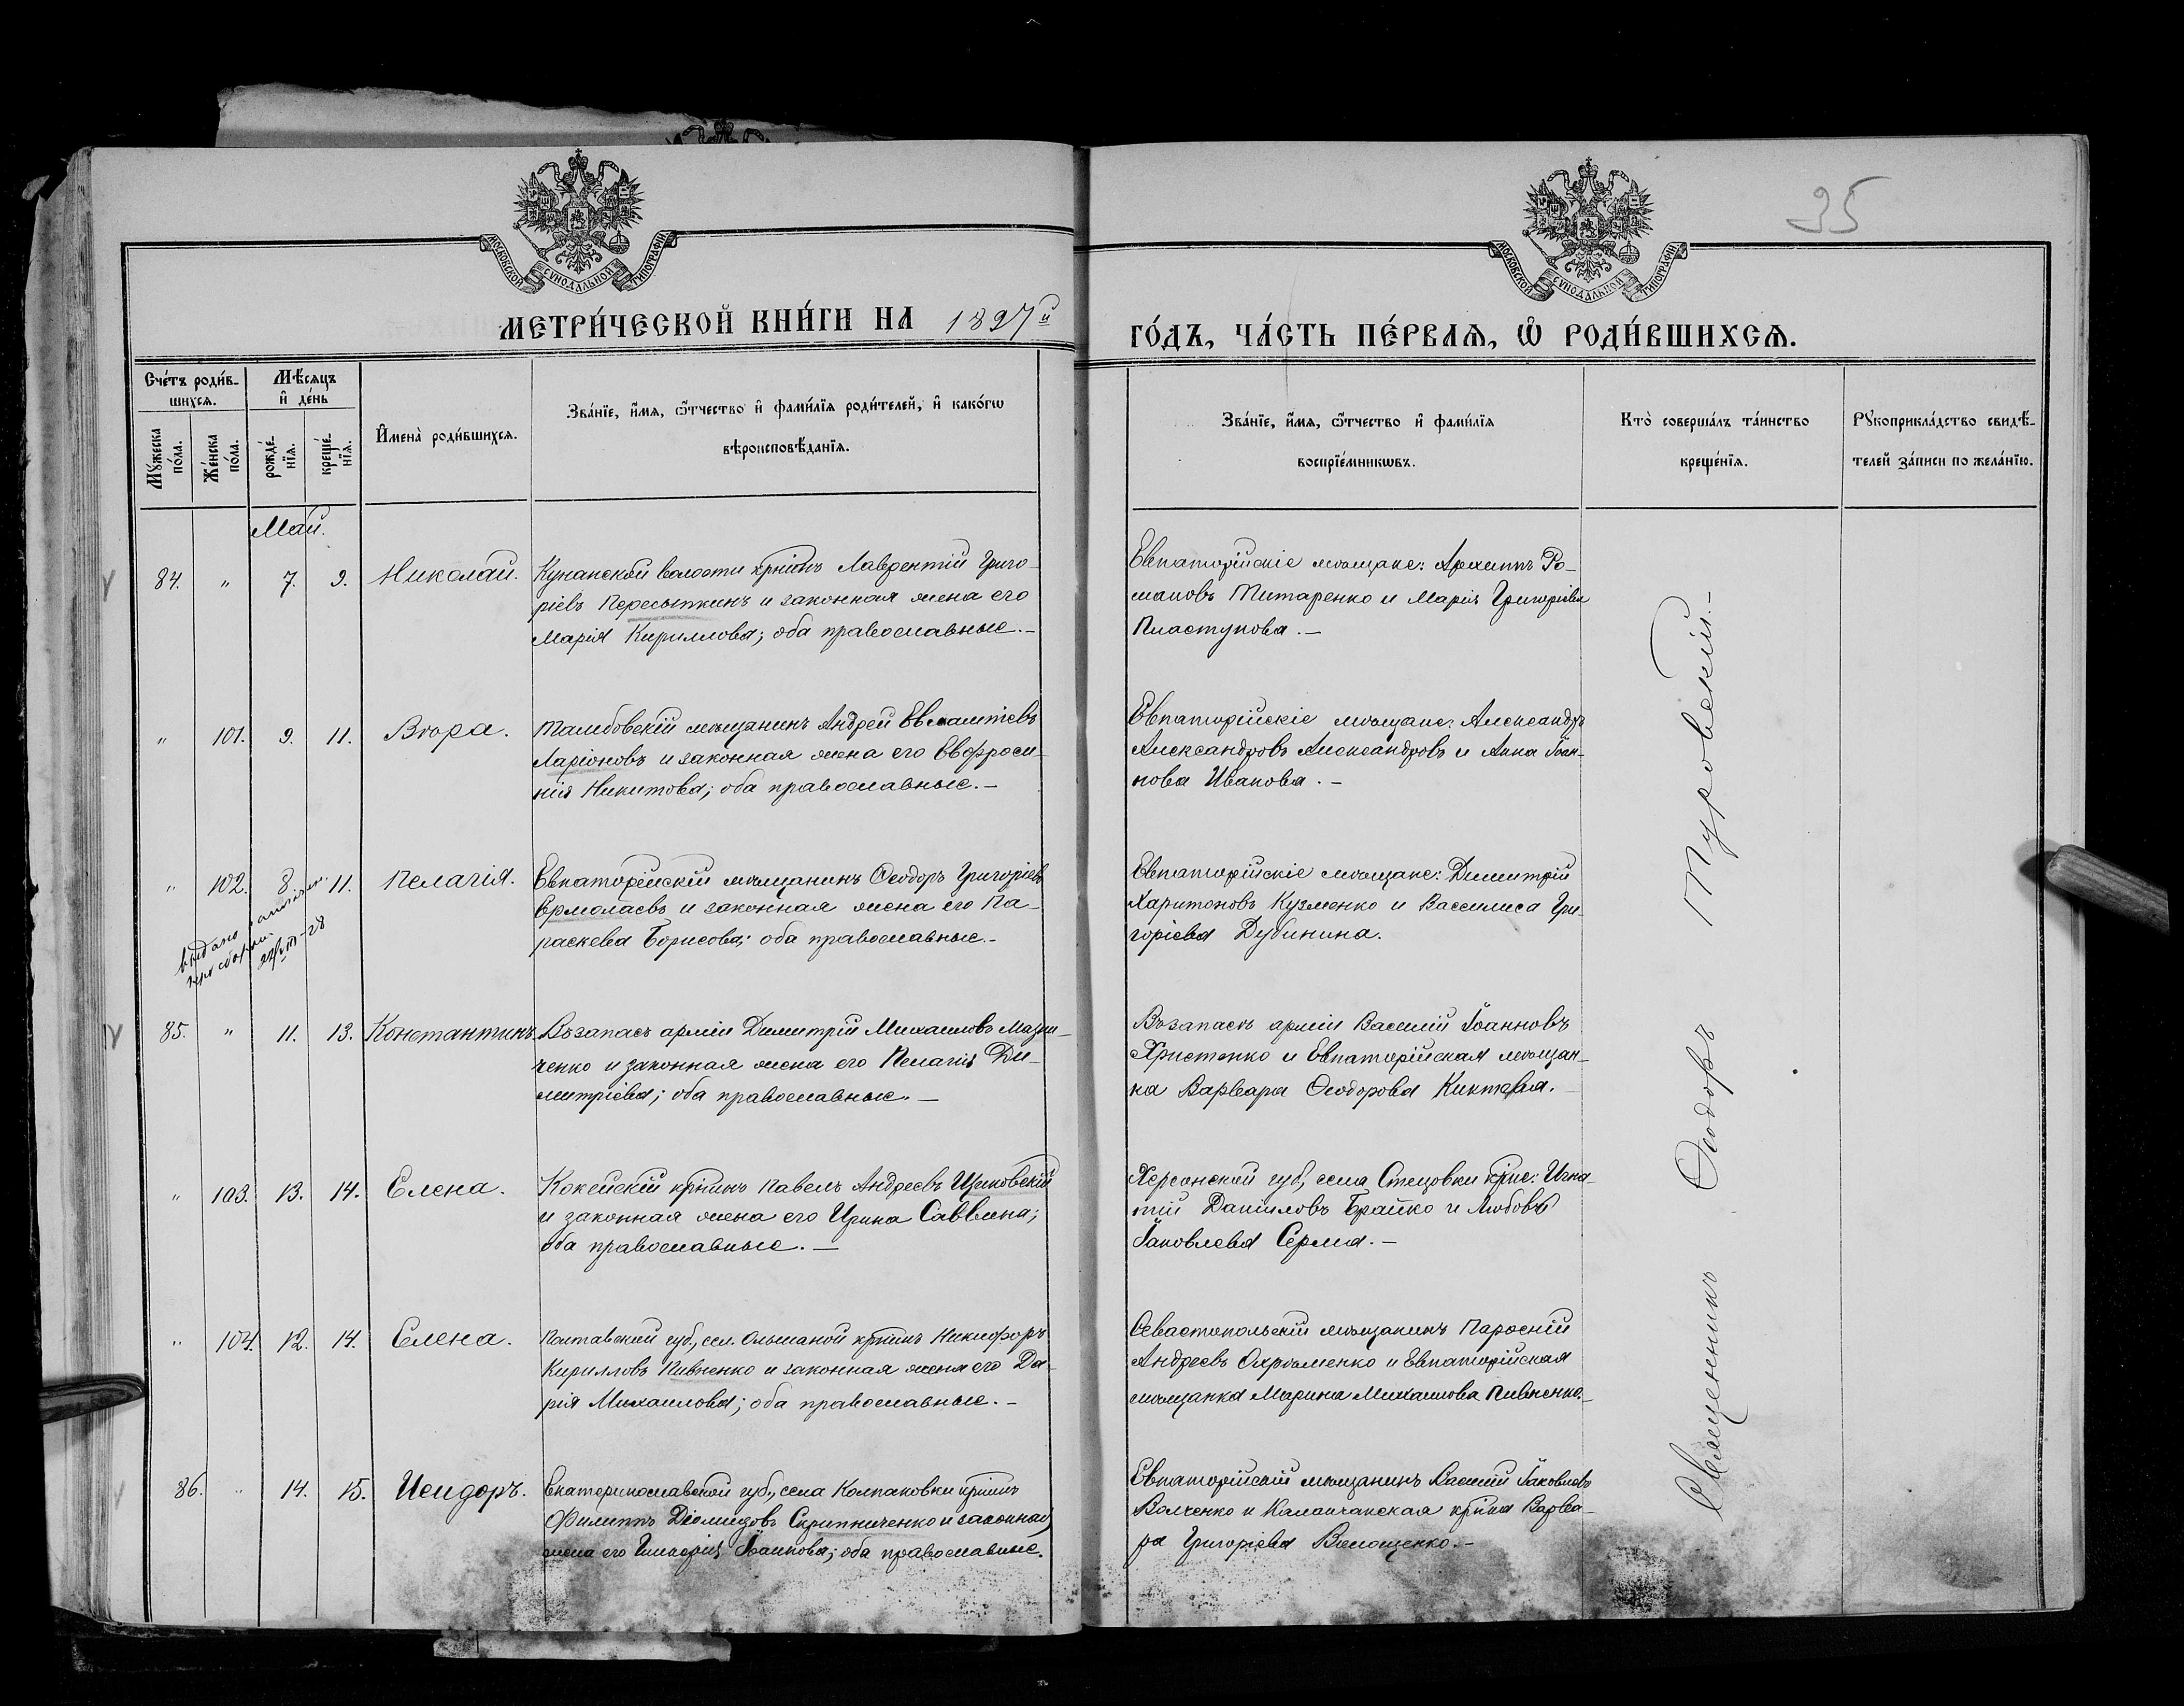 95
МОСКОВСКОЙ СѴНОДАЛЬНОЙ ТИПОГРАФІИ
МОСКОВСКОЙ СѴНОДАЛЬНОЙ ТИПОГРАФІИ
МЕТРИ́ЧЕСКОЙ КНИ́ГИ НА 1897й
ГО́ДЪ, ЧА́СТЬ ПЕ́РВАѦ, Ѽ РОДИ́ВШИХСѦ.
Сче́тъ роди́в-
шихсѧ.
Мѣ́сѧцъ
и҆ де́нь
Мꙋ́жеска
по́ла.
Же́нска
по́ла.
рожде́-
нїѧ.
креще́-
нїѧ.
И҆мена̀ роди́вшихсѧ.
Зва́нїе, и҆́мѧ, ѻ҆́тчество и҆ фами́лїѧ роди́телей, и҆ како́гѡ
вѣроисповѣ́данїѧ.
Зва́нїе, и҆́мѧ, ѻ҆́тчество и҆ фами́лїѧ
воспрїе́мникѡвъ.
Кто̀ соверша́лъ та́инство
креще́нїѧ.
Рꙋкоприкла́дство свидѣ́-
телей за́писи по жела́нїю.
Май.
84. " 7. 9. Николай. Кунанской волости крнинъ Лаврентій Григо-
ріевъ Пересыпкинъ и законная жена его
Марія Кириллова; оба православные.-
Евпаторійскіе мѣщане: Архиппъ Ро-
мановъ Титаренко и Марія Григоріева
Пластунова.-
" 101. 9. 11. Вѣра. Тамбовскій мѣщанинъ Андрей Евлампіевъ
Ларіоновъ и законная жена его Евфроси-
нія Никитова; оба православные.-
Евпаторійскіе мѣщане: Александръ
Александровъ Александровъ и Анна Іоан-
нова Иванова.-
" 102. 8. 11. Пелагія. Евпаторійскій мѣщанинъ Ѳеодоръ Григоріевъ
Ермолаевъ и законная жена его Па-
раскева Борисова; оба православные.-
выдано
Евпаторійскіе мѣщане: Димитрій
Харитоновъ Кузменко и Васселиса Гри-
горіева Дубинина.
85. " 11. 13. Константинъ. Въ запасъ арміи Димитрій Михаиловъ
ченко и законная жена его Пелагія Ди-
митріева; оба православные.-
Въ запасъ арміи Василій Іоанновъ
Христенко и Евпаторійская мѣщан-
ка Варвара Ѳеодорова Киктева.
" 103. 13. 14. Елена. крнинъ Павелъ Андреевъ
и законная жена его Ирина Саввина;
оба православные.-
Херсонской губ, села Стецовки крне: Игна-
тій Даниловъ Брайко и Любовь
Іаковлева
" 104. 12. 14. Елена. Полтавской губ., сел. Ольшаной крнинъ Никифоръ
Кирилловъ Пивненко и законная жена его Да-
рія Михаилова; оба православные.-
Севастопольскій мѣщанинъ Парѳеній
Андреевъ Охрѣменко и Евпаторійская
мѣщанка Марина Михаилова Пивненко.
86. " 14. 15. Исидоръ. Екатеринославской губ., села Колпаковки крнинъ
Филиппъ Діомидовъ Скрипниченко и законная
жена его Гликерія Іоаннова; оба православные.
Евпаторійскій мѣщанинъ Василій Іаковлевъ
Волченко и Каланчакская крнка Варва-
ра Григоріева
Священникъ Ѳеодоръ Туровскій.-